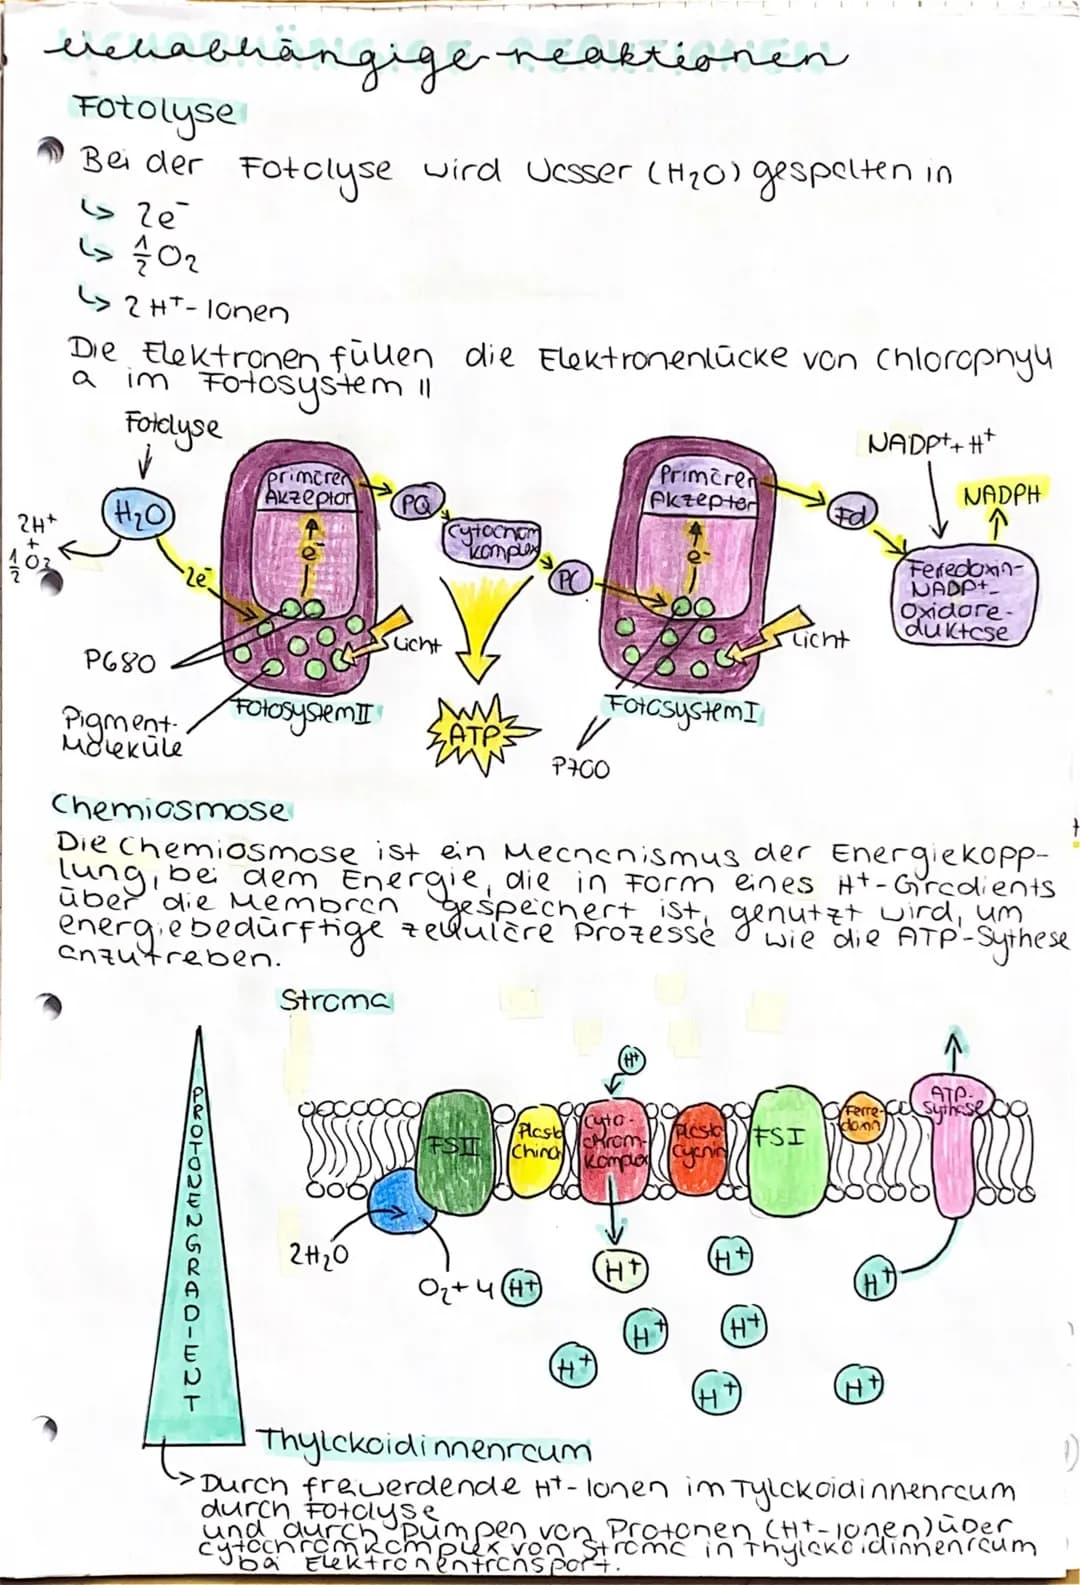 lichtabhängige reaktionen
Fotolyse
Bei der Fotolyse wird Wasser (H₂O) gespalten in
↳ 2e⁻
↳ ½O₂
↳ 2 H⁺-Ionen
Die Elektronen füllen die Elektronenlücke von Chlorophyll
a im Fotosystem II
Fotolyse
H₂O
2H⁺
+
½O₂
2e⁻
primärer
Akzeptor
e⁻
P680
Pigment-
Moleküle
Licht
Fotosystem II
PQ
Cytochrom
komplex
PC
ATP
Primärer
Akzeptor
e⁻
Licht
Fotosystem I
P700
Fd
NADP⁺+H⁺
NADPH
Feredoxin-
NADP⁺-
Oxidore-
duktase
Chemiosmose
Die Chemiosmose ist ein Mechanismus der Energiekopp-
lung, bei dem Energie, die in Form eines H⁺-Gradients
über die Membran gespeichert ist, genutzt wird, um
energiebedürftige zelluläre Prozesse wie die ATP-Sythese
anzutreben.
Stroma
PROTONENGRADIENT
H⁺
FSII
Plasto
Chinon
Cyto-
chrom-
komplex
Plasto
Cyanin
FSI
Ferre-
doxin
ATP-
Sythase
2H₂O
O₂+4 H⁺
H⁺
H⁺
H⁺
H⁺
H⁺
H⁺
H⁺
H⁺
Thylakoidinnenraum
↳ Durch freiwerdende H⁺-Ionen im Tylakoidinnenraum
durch Fotolyse
und durch Pumpen von Protonen (H⁺-Ionen) über
cytochromkomplex von Stroma in Thylakoidinnenraum
bei Elektronentransport.